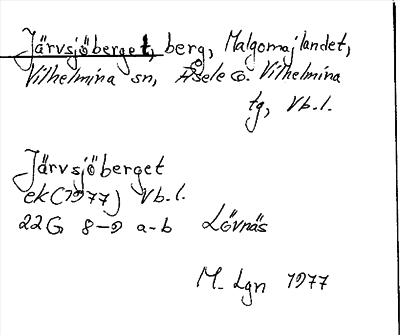 Järvsjöberget, berg, Malgomajlandet,
Vilhelmina sn, Åsele o. Vilhelmina
tg, Vb.l.
Järvsjöberget
ek (1977) Vb.l.
22G 8-9 a-b Lövnäs
M. Lgn 1977